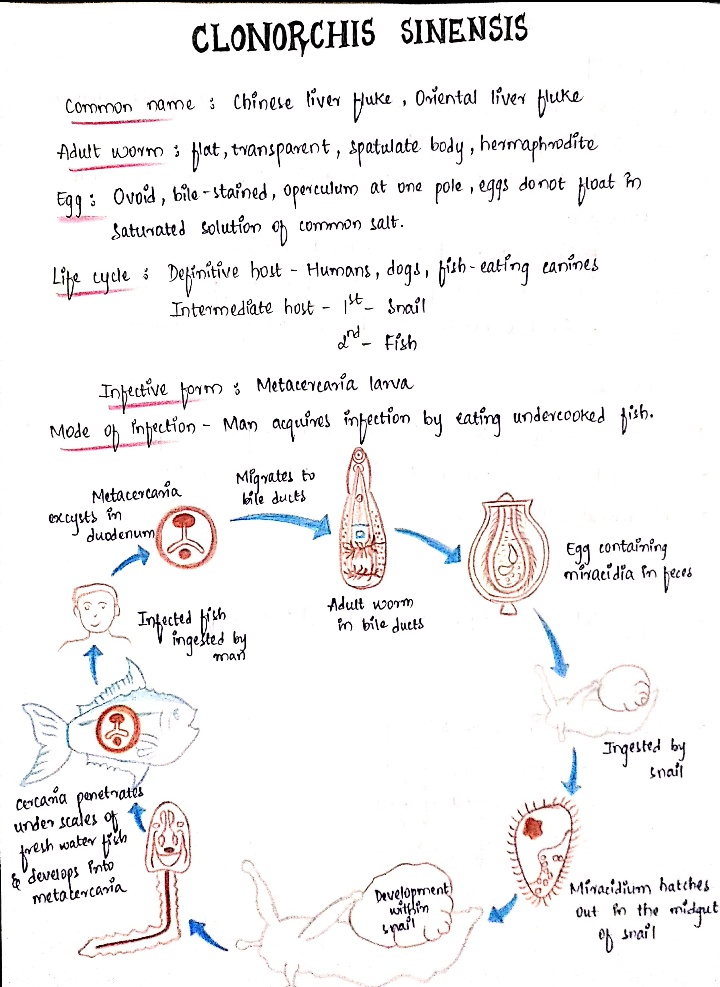 CLONORCHIS SINENSIS
Common name : Chinese liver fluke, Oriental liver fluke
Adult worm : flat, transparent, spatulate body, hermaphrodite
Egg : Ovoid, bile-stained, operculum at one pole, eggs do not float in
saturated solution of common salt.
Life cycle : Definitive host - Humans, dogs, fish-eating canines
Intermediate host - 1st - Snail
2nd - Fish
Infective form : Metacercaria larva
Mode of infection - Man acquires infection by eating undercooked fish.
Metacercaria
excysts in
duodenum
Migrates to
bile ducts
Adult worm
in bile ducts
Egg containing
miracidia in feces
Infected fish
ingested by
man
Ingested by
snail
Cercaria penetrates
under scales of
fresh water fish
& develops into
metatercaria
Development
within
snail
Miracidium hatches
out in the midgut
of snail